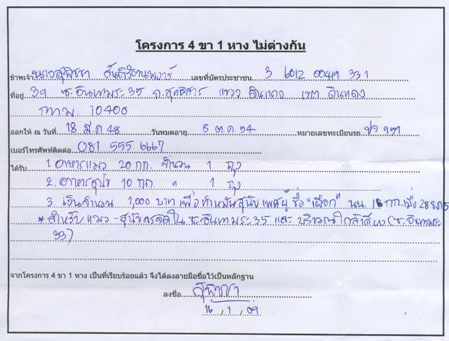 โครงการ 4 ขา 1 หาง ไม่ต่างกัน
ข้าพเจ้า นางสุพิชชา เลขที่บัตรประชาชน 3
ที่อยู่ 39 ซ.อินทามระ 35 ถ.สุทธิสาร แขวง ดินแดง เขต ดินแดง
กทม 10400
ออกให้ ณ วันที่ 18 มี.ค 48 วันหมดอายุ 5 ต.ค 54 หมายเลขทะเบียนรถ
เบอร์โทรศัพท์ติดต่อ 081 555 6667
ได้รับ 1. อาหารแมว 20 กก. จำนวน 1 ถุง
2. อาหารสุนัข 10 กก. " 1 ถุง
3. เงินจำนวน 1,000 บาท เพื่อทำหมันสุนัขเพศผู้ ชื่อ "เผือก" นน. 16 กก. เมื่อ 28
* สำหรับแมว - สุนัขจรจัดใน ซ.อินทามระ 35 และ บริเวณใกล้เคียง (ซ.อินทามระ
33)
จากโครงการ 4 ขา 1 หาง เป็นที่เรียบร้อยแล้ว จึงได้ลงลายมือชื่อไว้เป็นหลักฐาน
ลงชื่อ
16, 1, 09